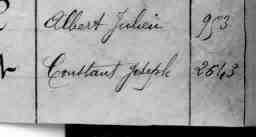 Albert Julien 953
Constant Joseph 2643